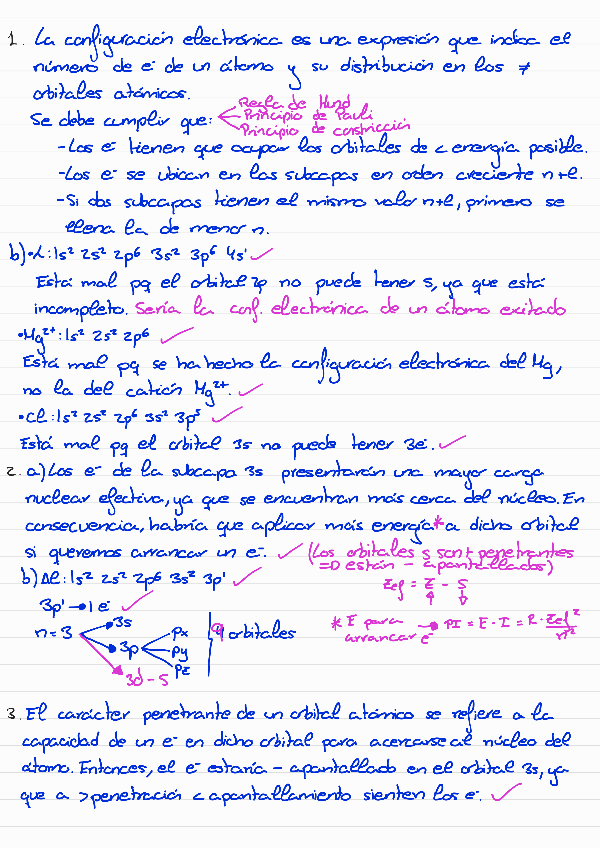 1. La configuración electrónica es una expresión que indica el
número de e⁻ de un átomo y su distribución en los ≠
orbitales atómicos.
Se debe cumplir que:
Regla de Hund
Principio de Pauli
Principio de construcción
-Los e⁻ tienen que ocupar los orbitales de < energía posible.
-Los e⁻ se ubican en las subcapas en orden creciente n+l.
-Si dos subcapas tienen el mismo valor n+l, primero se
llena la de menor n.
b)•K: 1s² 2s² 2p⁶ 3s² 3p⁶ 4s¹ ✓
Está mal pq el orbital 2p no puede tener 5, ya que está
incompleto. Sería la conf. electrónica de un átomo exitado
•Mg²⁺: 1s² 2s² 2p⁶ ✓
Está mal pq se ha hecho la configuración electrónica del Mg,
no la del catión Mg²⁺. ✓
•Cl: 1s² 2s² 2p⁶ 3s² 3p⁵ ✓
Está mal pq el orbital 3s no puede tener 3e⁻. ✓
2. a) Los e⁻ de la subcapa 3s presentarán una mayor carga
nuclear efectiva, ya que se encuentran más cerca del núcleo. En
consecuencia, habría que aplicar más energía* a dicho orbital
si queremos arrancar un e⁻. ✓ (Los orbitales s son + penetrantes
=D están - apantallados)
b) Al: 1s² 2s² 2p⁶ 3s² 3p¹ ✓
Zef = Z - S
3p¹ → 1 e⁻ ✓
n=3
3s
3p
px
py
pz
3d - 5
9 orbitales
* E para
arrancar e⁻
→ PI = E·I = R · Zef² / n²
3. El carácter penetrante de un orbital atómico se refiere a la
capacidad de un e⁻ en dicho orbital para acercarse al núcleo del
átomo. Entonces, el e⁻ estaría - apantallado en el orbital 3s, ya
que a > penetración < apantallamiento sienten los e⁻. ✓